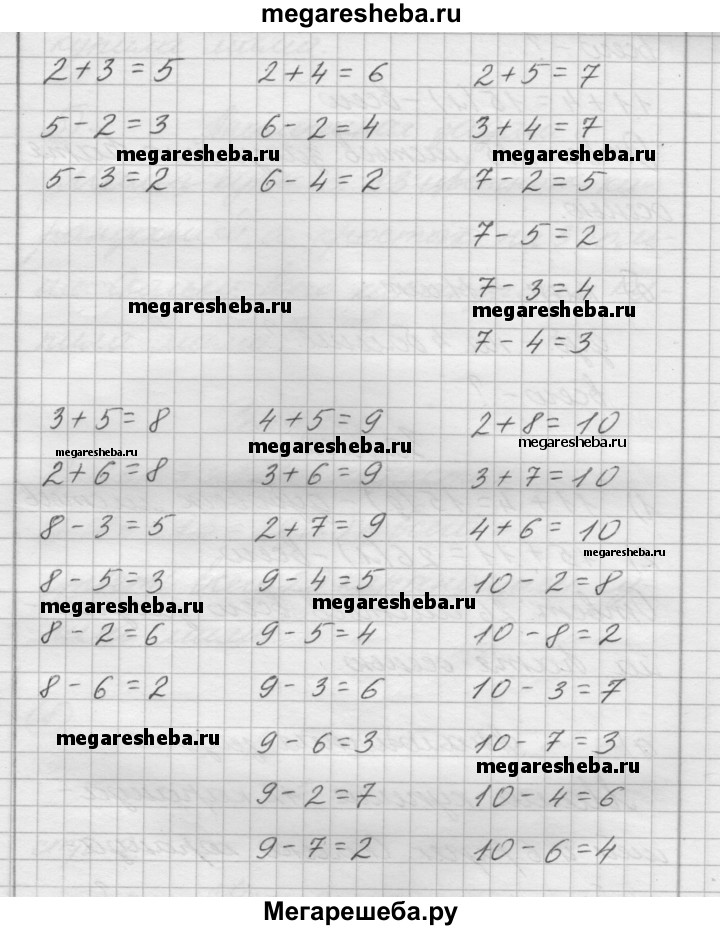 megaresheba.ru
2+3=5 2+4=6 2+5=7
5-2=3 6-2=4 3+4=7
megaresheba.ru megaresheba.ru
5-3=2 6-4=2 7-2=5
7-5=2
7-3=4
megaresheba.ru megaresheba.ru
7-4=3
3+5=8 4+5=9 2+8=10
megaresheba.ru megaresheba.ru megaresheba.ru
2+6=8 3+6=9 3+7=10
8-3=5 2+7=9 4+6=10
megaresheba.ru
8-5=3 9-4=5 10-2=8
megaresheba.ru megaresheba.ru
8-2=6 9-5=4 10-8=2
8-6=2 9-3=6 10-3=7
megaresheba.ru 9-6=3 10-7=3
megaresheba.ru
9-2=7 10-4=6
9-7=2 10-6=4
Мегарешеба.ру